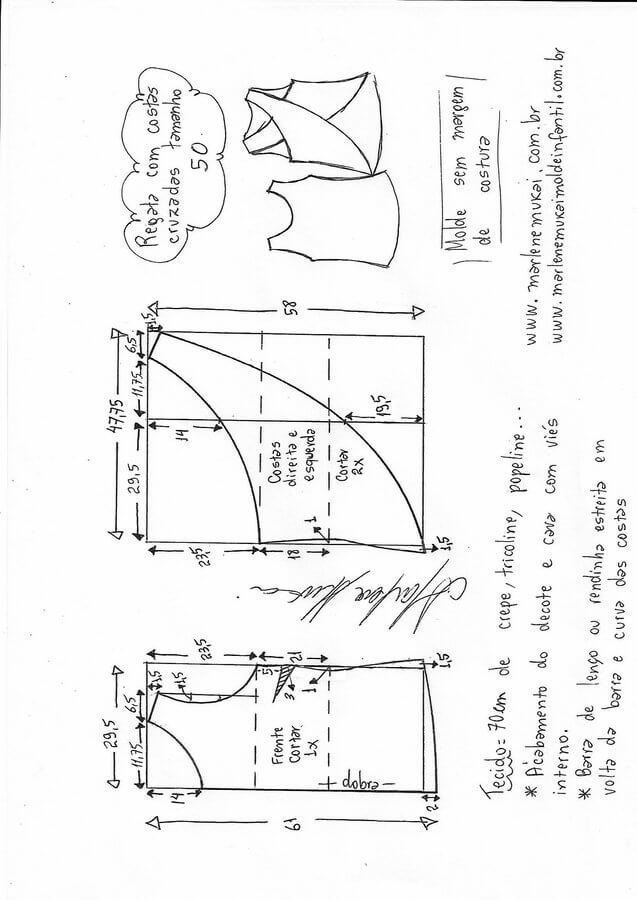 Regata com costas
cruzadas tamanho
50
Molde sem margem
de costura
www.marlenemukai.com.br
www.marlenemukaimoldeinfantil.com.br
58
1,5
6,5
11,75
47,75
29,5
14
19,5
Costas
direita e
esquerda
Cortar
2x
1
23,5
18
1,5
23,5
21
1,5
1,5
1,5
6,5
11,75
29,5
5
3
1
Frente
Cortar
1x
dobra
14
61
2
Tecido = 70cm de crepe, tricoline, popeline...
* Acabamento do decote e cava com viés
interno.
* Barra de lenço ou rendinha estreita em
volta da barra e curva das costas